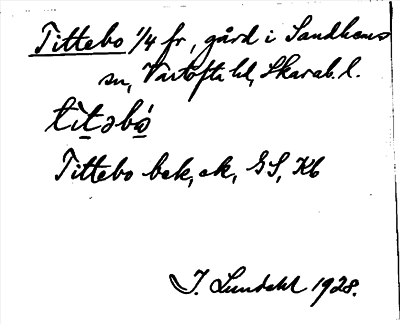 Tittebo 1/4 fr, gård i Sandhems
sn, Vartofta hd, Skarab. l.
titəbo
Tittebo bek, ek, GS, Kb
I. Lundahl 1928.